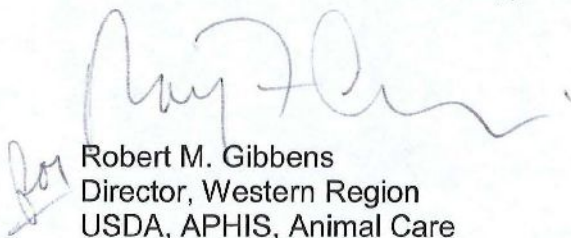 for Robert M. Gibbens
Director, Western Region
USDA, APHIS, Animal Care